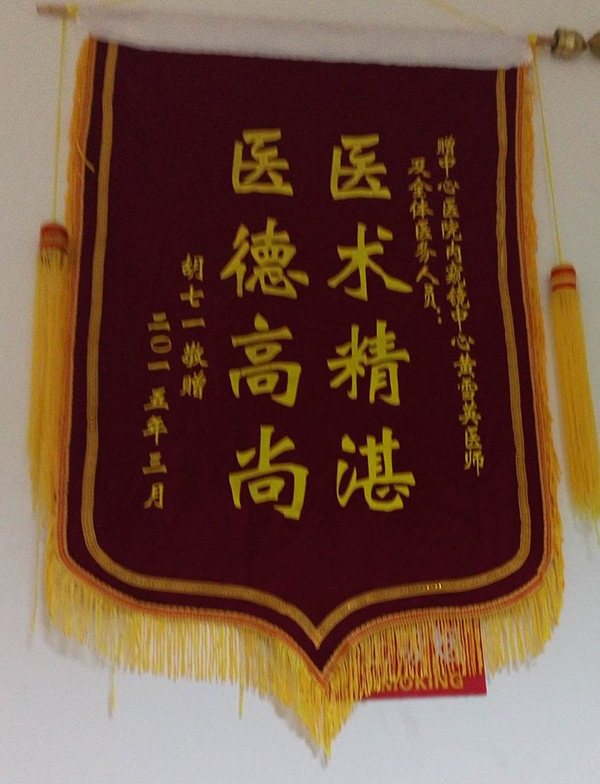 赠中心医院内窥镜中心黄雪英医师
及全体医务人员：
医术精湛
医德高尚
胡七一敬赠
二〇一五年三月
MOKING